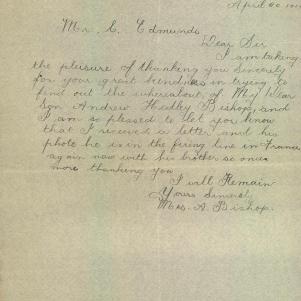 April 20
Mr. C. Edmunds
Dear Sir
I am taking
the pleisure of thanking you sincerly
for your great kindness in trying to
find out the wherealout of My Dear
Son Andrew Hedley Bishop, and
I am so pleased to let you know
that I received a letter and his
photo he is in the fireing line in France
again now with his brother so once
more thanking you
I will Remain
Yours Sincerly
Mrs. A. Bishop.